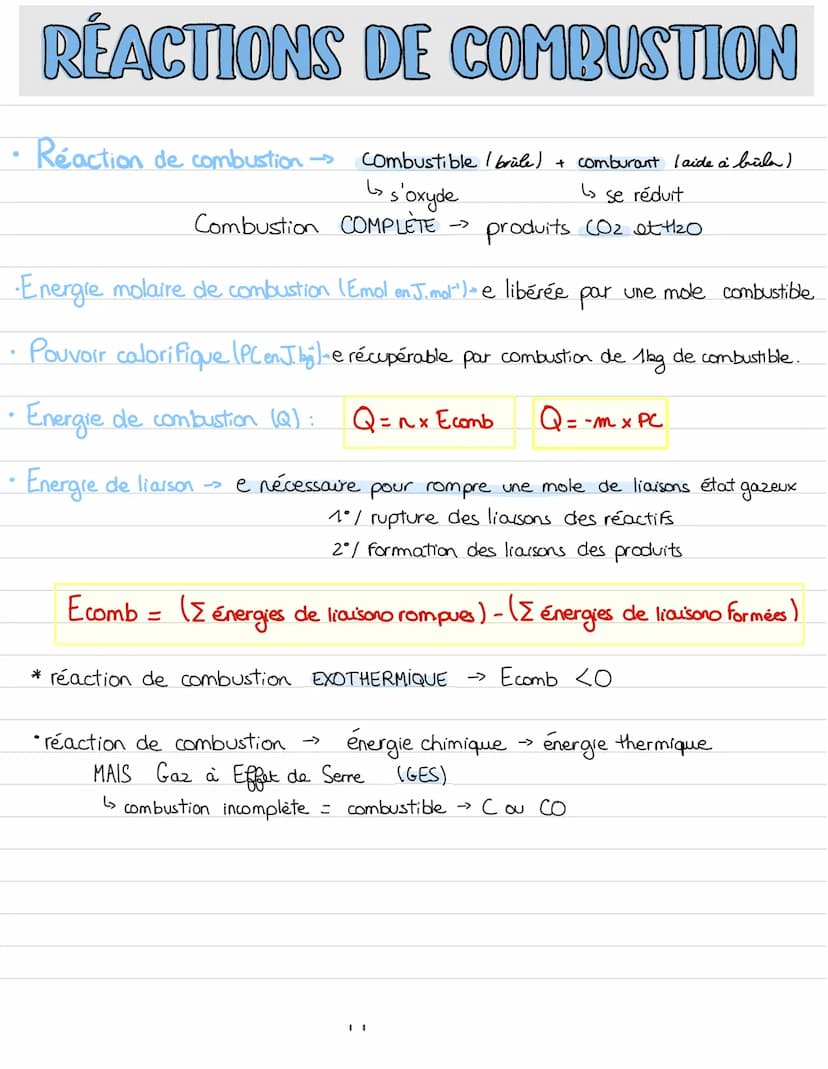 RÉACTIONS DE COMBUSTION
• Réaction de combustion → combustible (brûle) + comburant (aide à brûler)
↳ s'oxyde ↳ se réduit
Combustion COMPLÈTE → produits CO2 et H2O
•Energie molaire de combustion (Emol en J.mol⁻¹)→ e libérée par une mole combustible
• Pouvoir calorifique (PC en J.kg⁻¹)→e récupérable par combustion de 1kg de combustible.
• Energie de combustion (Q) : Q = n x Ecomb Q = -m x PC
• Energie de liaison → e nécessaire pour rompre une mole de liaisons état gazeux
1°/ rupture des liaisons des réactifs
2°/ formation des liaisons des produits
Ecomb = (Σ énergies de liaisons rompues) - (Σ énergies de liaisons formées)
* réaction de combustion EXOTHERMIQUE → Ecomb <0
•réaction de combustion → énergie chimique → énergie thermique
MAIS Gaz à Effet de Serre (GES)
↳ combustion incomplète = combustible → C ou CO